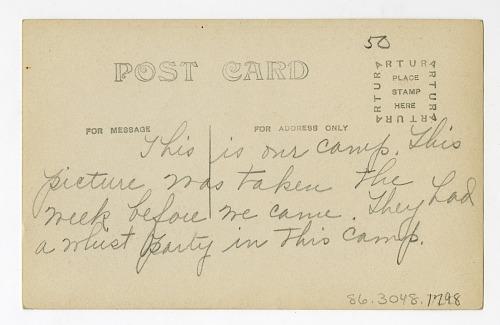 50
POST CARD
ARTURA
ARTURA
PLACE
STAMP
HERE
ARTURA
ARTURA
FOR MESSAGE
FOR ADDRESS ONLY
This is our camp. This
picture was taken the
week before we came. They had
a whist party in this camp.
86.3048.1798